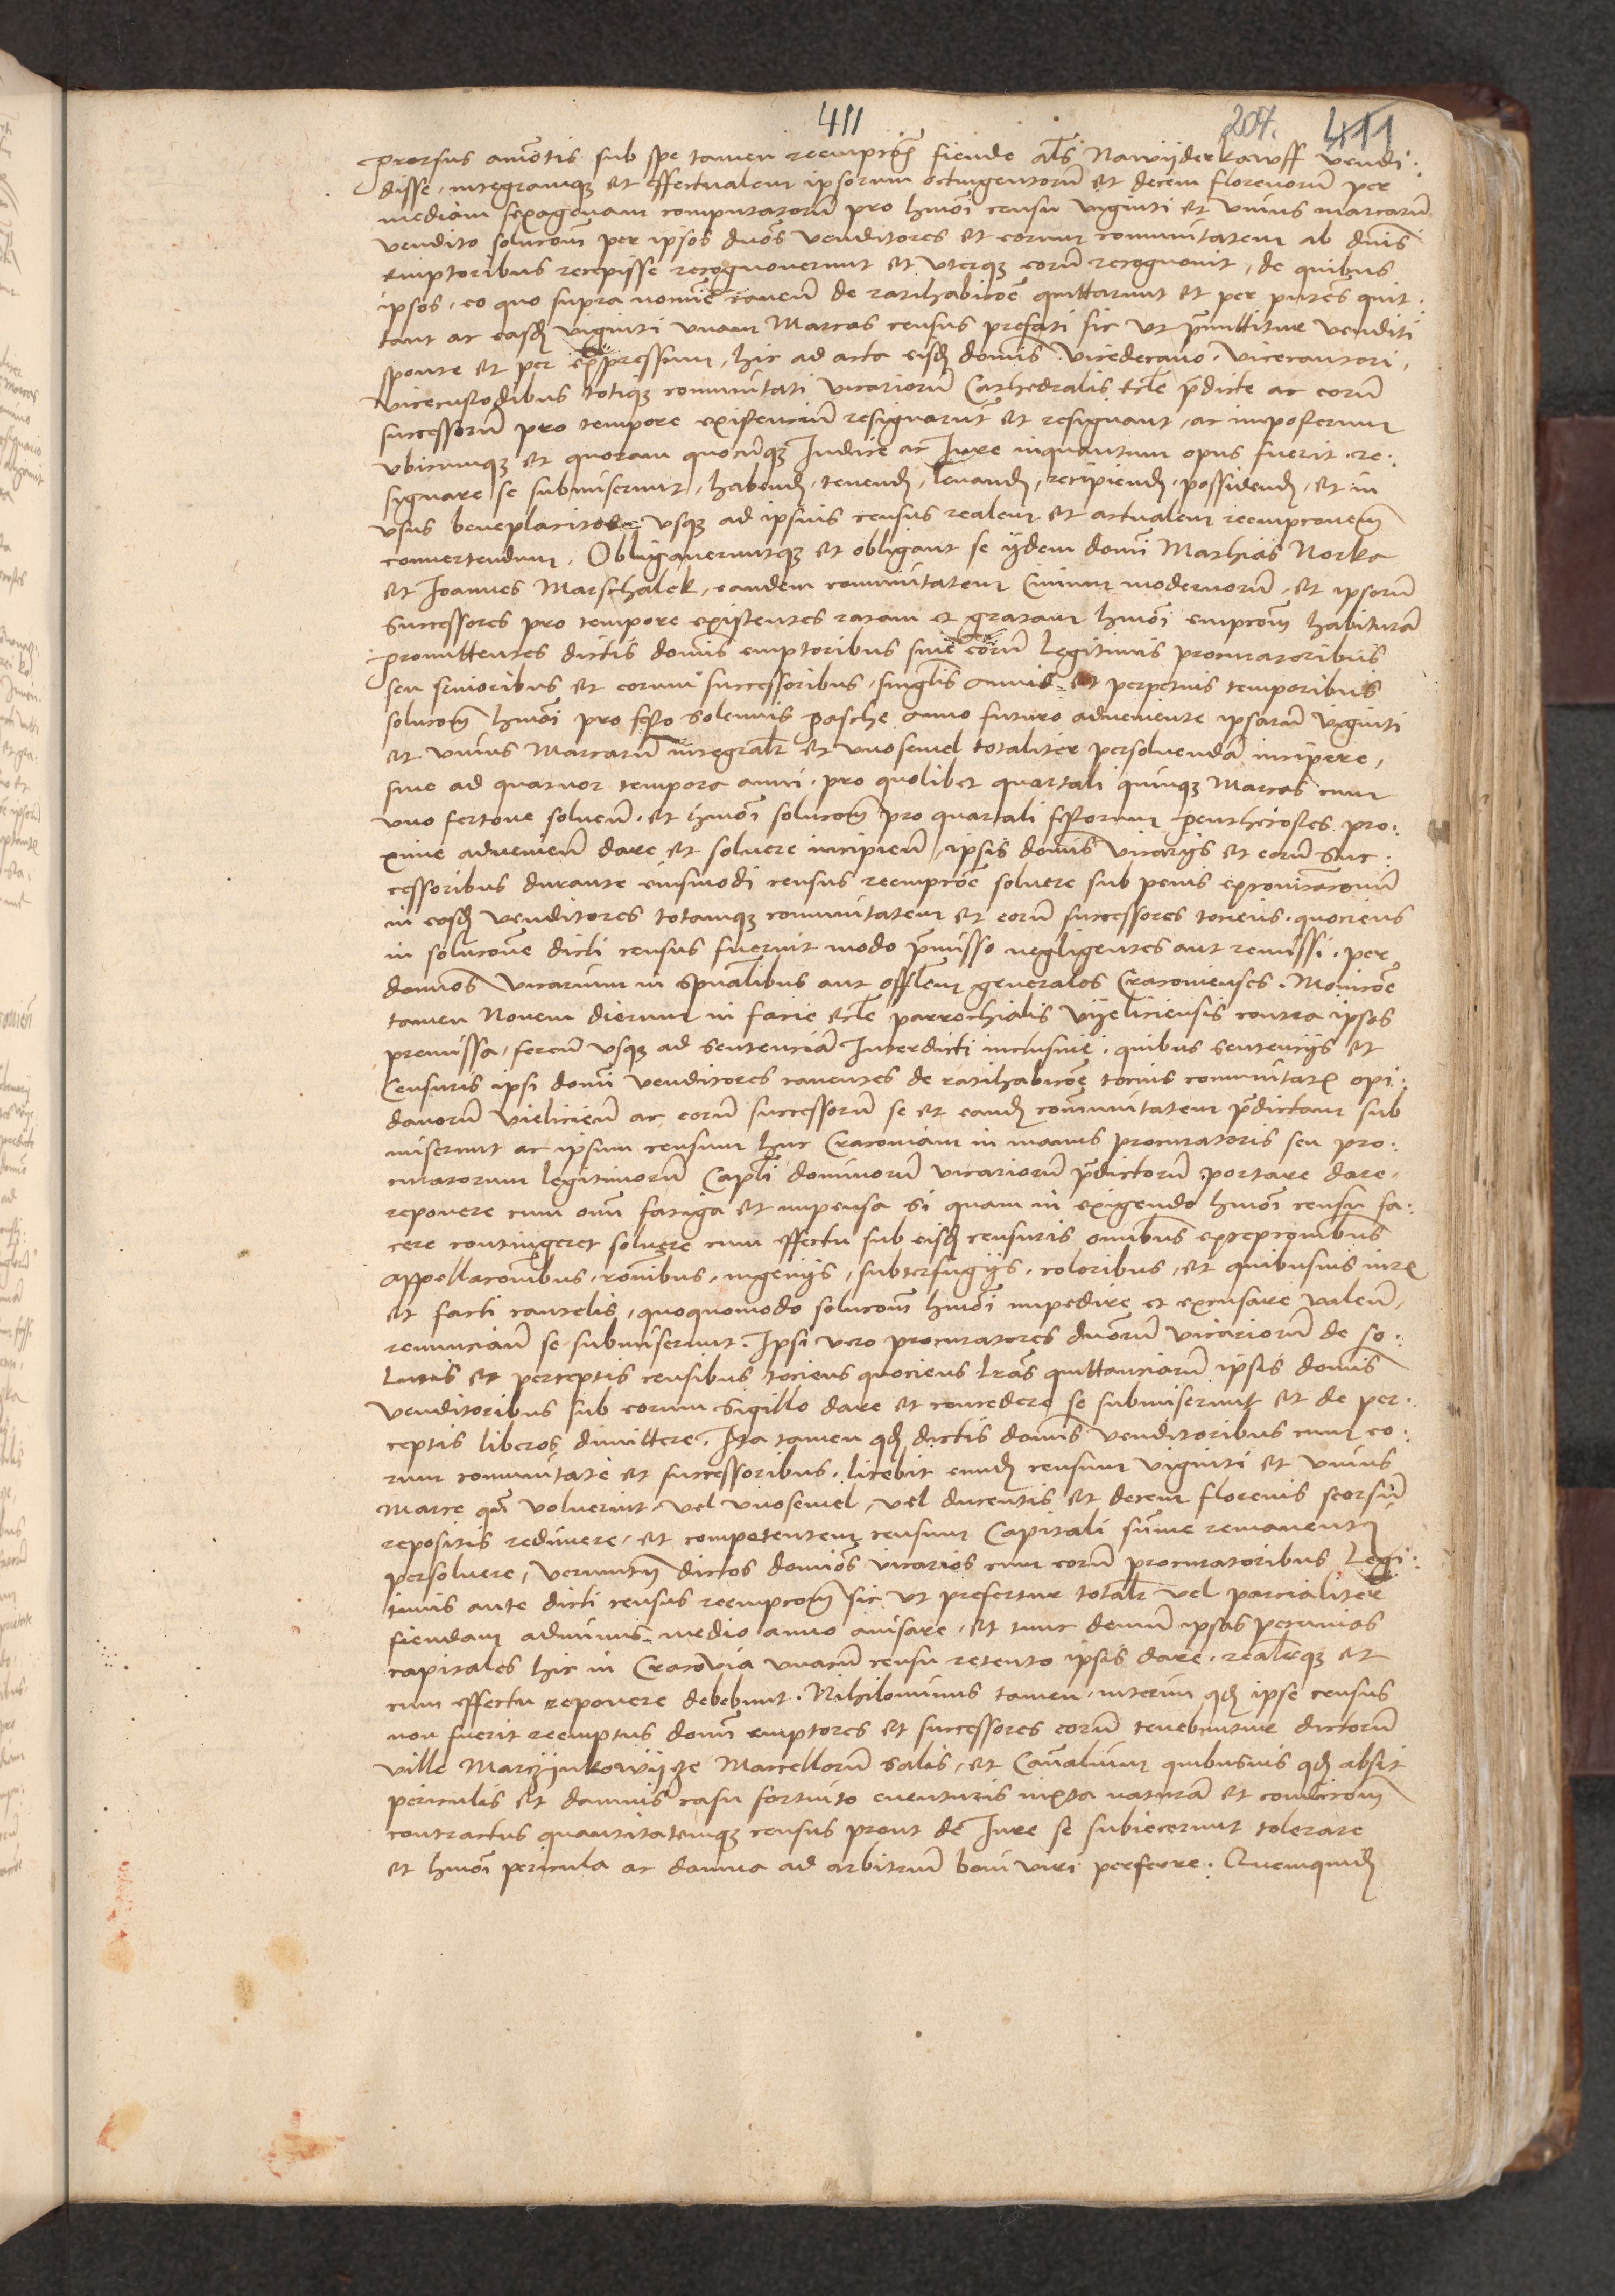 411 207. 411
prorsus amotis sub spe tamen reempcois fiende als Nawyderkawff vendi:
disse, integramq; et effectualem ipsorum octingentorū et decem florenorū per
mediam sexagenam computatorū pro hmoi censu viginti et vnius marcarū
vendito solucom per ipsos duos venditores et eorum comunitatem ab dnis
emptoribus recepisse recognouerunt et vterq; eorū recognouit, de quibus
ipsos, eo quo supra nomie caueñ de ratihabicoe quittarunt et per pntes quit:
tant ac easd viginti vnam Marcas census prefati sic vt pmittitur venditi
sponte et per expressum, hic ad acta eisd domis vicedecano, vicecantori,
vicecustodibus totiq; comunitati vicariorū Cathedralis ecle pdicte ac eorū
successorū pro tempore existenciū resignarūt et resignant, ac inposterum
vbicumq; et quoram quocūq; Iudice ac Iure inquantum opus fuerit, re:
signare se submiserunt, habend, tenend, leuand, recipiend, possidend, et in
vsus beneplacitos vsq; ad ipsius census realem et actualem reempconem
conuertendum. Obligaueruntq; et obligant se ijdem domi Mathias Norka
et Joannes Marschalek, eandem comunitatem Ciuium modernorū, et ipsorū
successores pro tempore existentes ratam et gratam hmoi empcom habiturā
promittentes dictis domis emptoribus siue eorū legitimis procuratoribus
seu senioribus et eorum successoribus, singlis annis et perpetuis temporibus
solucom hmoi pro festo solennis pasche anno futuro adueniente ipsarū viginti
et vnius Marcarū integralr et vnosemel totaliter persoluendā incipere,
siue ad quatuor tempora anni, pro quolibet quartali quinq; Marcas cum
vno fertone solueñ, et hmoi solucom pro quartali festorum penthecostes pro:
xime adueneñ dare et soluere incipieñ, ipsis domis vicarijs et eorū suc:
cessoribus durante eiusmodi census reempcoe soluere sub penis excoicaconū
in eosd venditores totamq; comunitatem et eorū successores tociens, quociens
in solucone dicti census fuerint modo pmisso negligentes aut remissi, per
domos vicarium in spualibus aut officlem generales Cracouienses. Monicoe
tamen Nouem dierum in facie ecle parrochialis Vyeliciensis contra ipsos
premissa, fereñ vsq; ad sentenciā Interdicti inclusiue, quibus sentencijs et
Censuris ipsi domi venditores cauentes de ratihabicoe tocius comunitatis opi:
danorū Vielicieñ ac eorū successorū se et eand comunitatem pdictam sub
miserunt ac ipsum censum huc Cracouiam in manus procuratoris seu pro:
curatorum legitimorū Capli dominorū vicariorū pdictorū portare dare,
reponere cum omi fatiga et impensa si quam in exigendo hmoi censu fa:
cere contingeret soluere cum effectu sub eisd censuris omibus excepcomibus
appellaconibus, romibus, ingenijs, subterfugijs, coloribus, et quibusuis iuris
et facti cautelis, quoquomodo solucom hmoi impedire et excusare valeñ,
renunciañ se submiserunt. Ipsi vero procuratores dnorū vicariorū de so:
lutis et perceptis censibus tociens quociens lras quittanciarū ipsis domis
venditoribus sub eorum sigillo dare et concedere se submiserunt et de per:
ceptis liberos dimittere. Ita tamen qd dictis domis venditoribus cum eo:
rum comunitate et successoribus, licebit eund censum viginti et vnius
Marce qn voluerint, vel vnosemel, vel ducentis et decem florenis seorsū
repositis redimere, et competentem censum Capitali sume remanenti
persoluere, veruntn dictos domios vicarios cum eorū procuratoribus legi:
timis ante dicti census reempcom sic vt prefertur totalr vel parcialiter
fiendam adminus medio anno auisare, et tunc demū ipsas pecunias
capitales hic in Cracouia vnacū censu retento ipsis dare, realterq; et
cum effectu reponere debebunt. Nihilominus tamen, interim qd ipse census
non fuerit reemptus domi emptores et successores eorū tenebuntur dictorū
ville Marczynkowycze Marcellorū salis, et Caualium quibusuis qd absit
periculis et damnis casu fortuito euenturis iuxta naturā et condicom
contractus quantitatemq; census prout de Iure se subiecerunt tolerare
et hmoi pericula ac damna ad arbitriū boni viri perferre. Quemquid